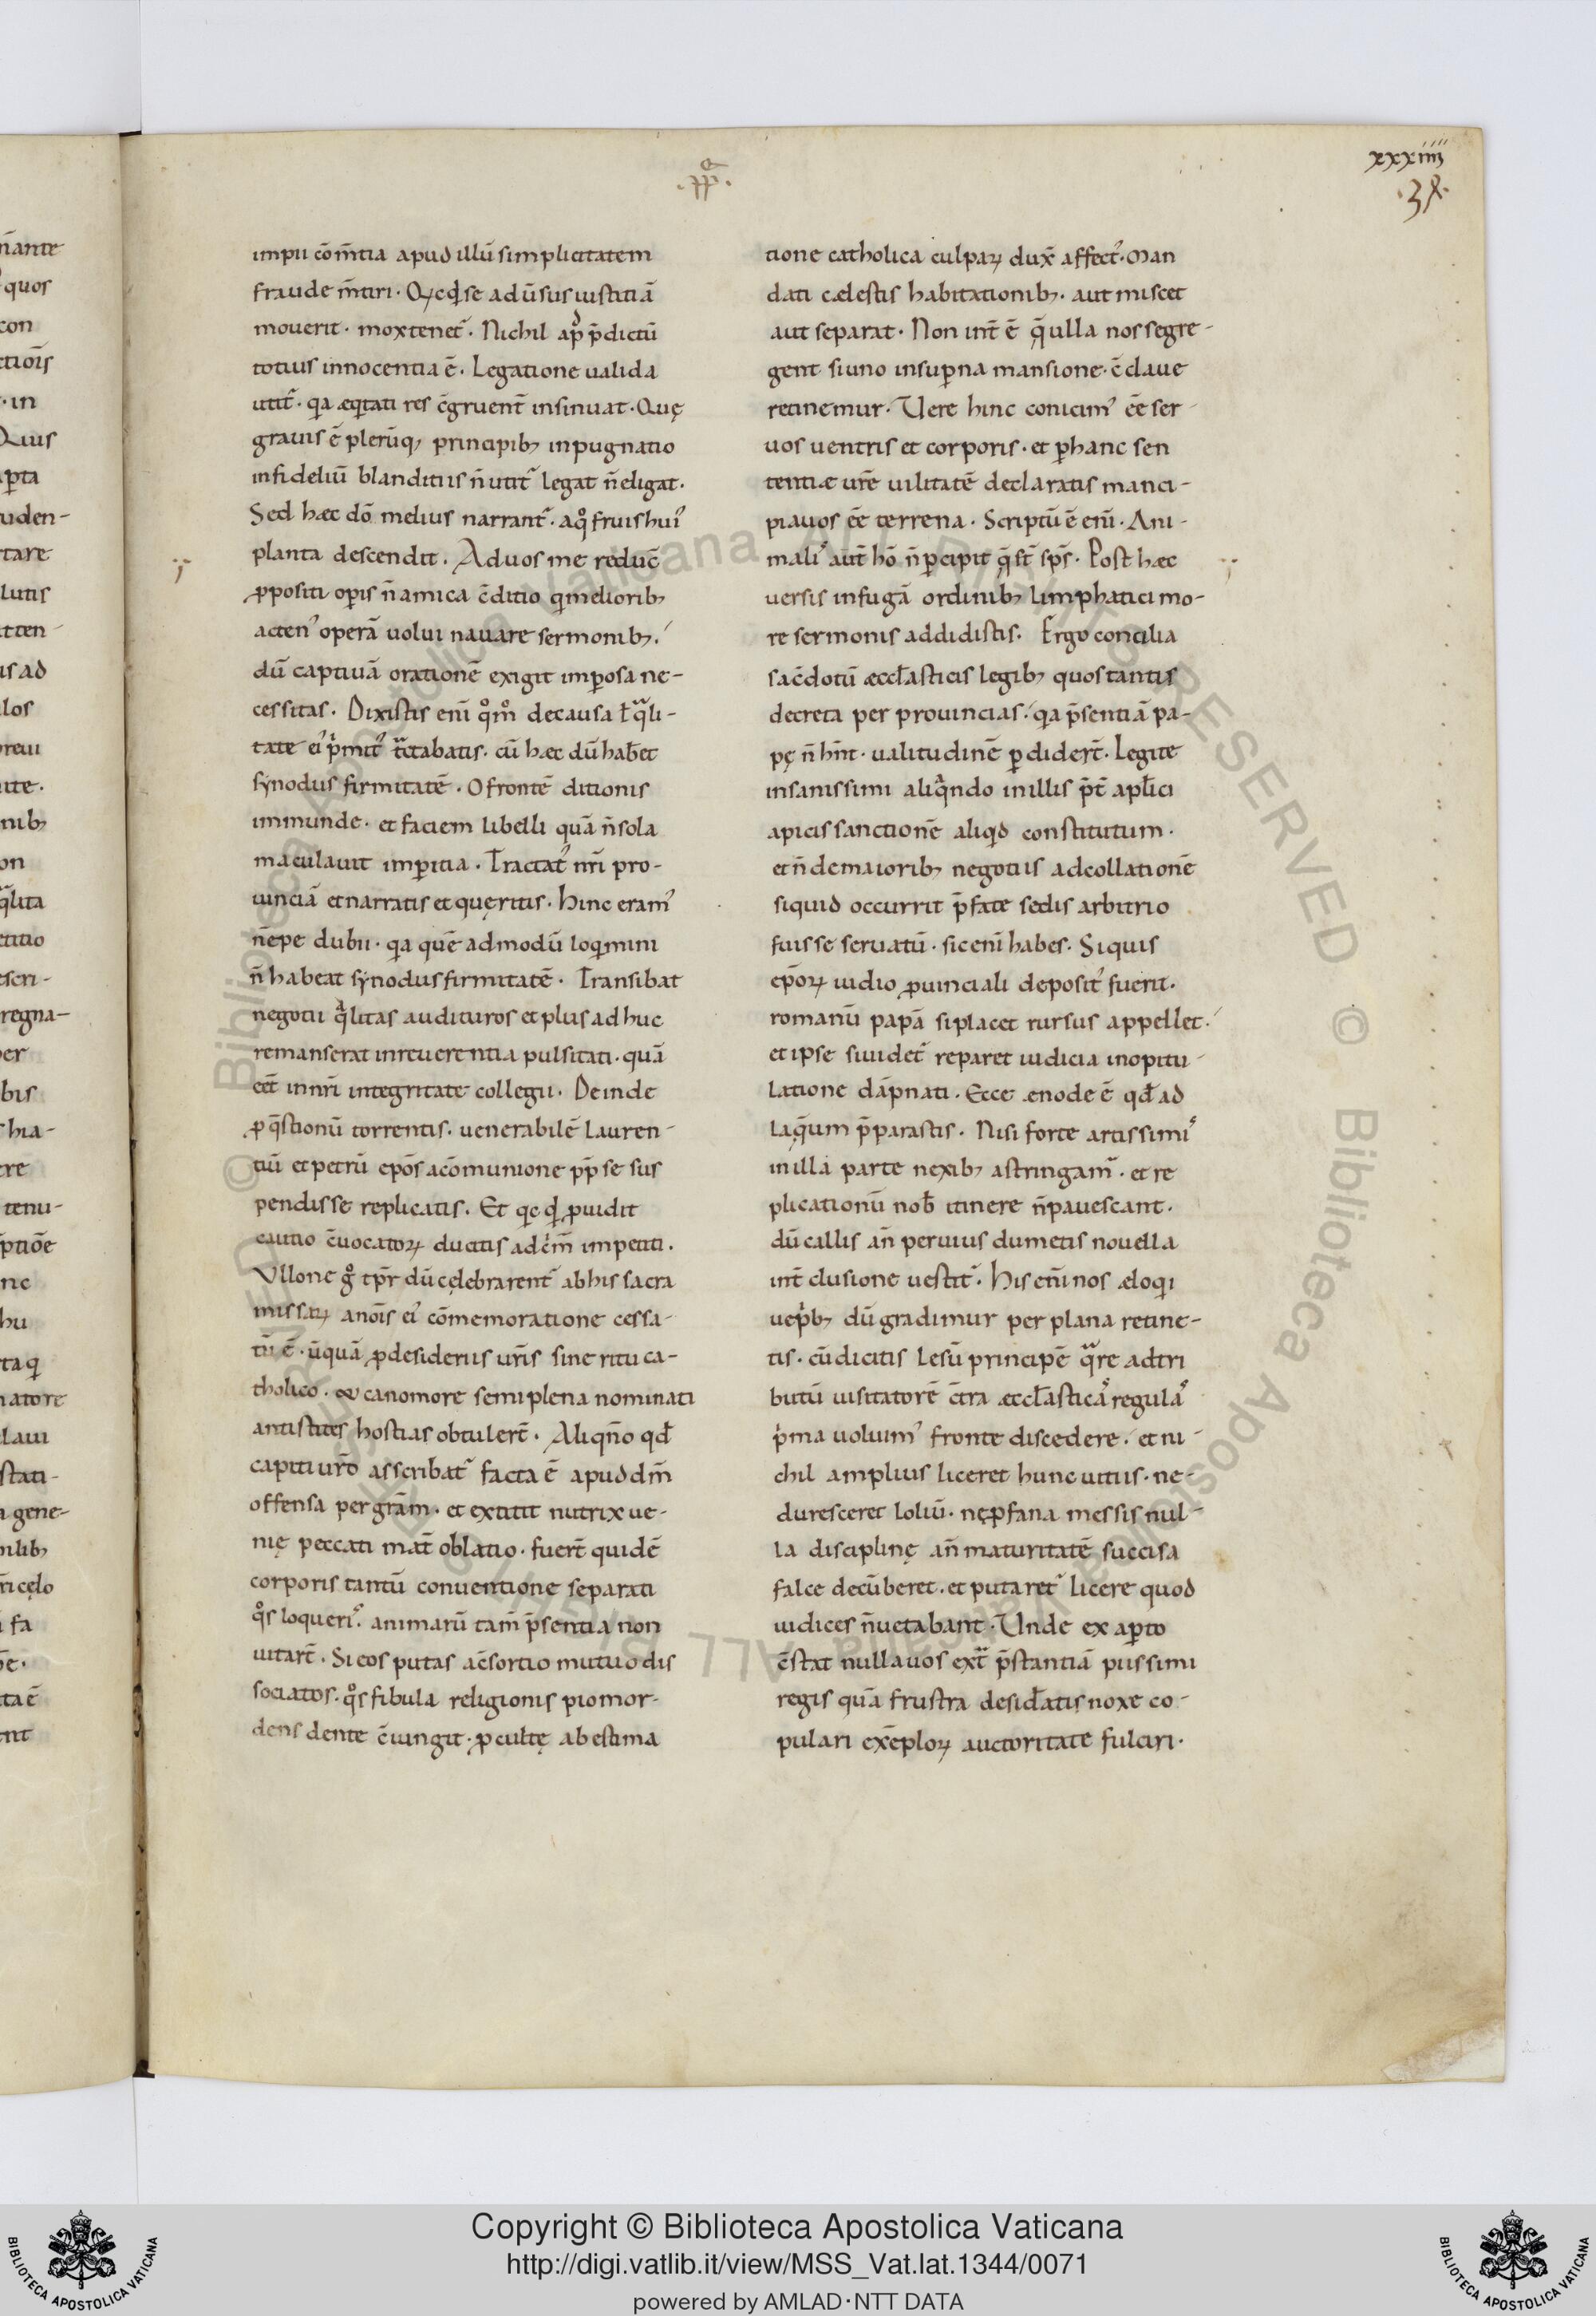 xxxiiii
·38·
·pp̅·
impii com̅tia apud illu̅ simplicitatem
fraude m̅tiri · Qꝫcq̇d se adu̅sus iustitia̅
mouerit · mox tenet᷑ · Nichil ap̅d p̅dictu̅
totius innocentia e̅ · Legatione ualida
utit᷑ · qa æqtati res c̅gruent᷑ insinuat · Quę
grauis e̅ pleru̅qꝫ principibꝫ inpugnatio
infideliu̅ blanditiis n̅ utit᷑ legat n̅ eligat ·
Sed hæc do̅ melius narrant᷑ · aqͦ fruis hui᷒
planta descendit · Aduos me reduc̅
ꝓpositi oꝑis n̅ amica c̅ditio q meliori bꝫ
acten᷒ opera̅ uolui nauare sermonibꝫ ·
du̅ captiua̅ oratione̅ exigit imꝑosa ne-
cessitas · Dixistis eni̅ qͦmͦ decausa ł qͣli-
tate ei᷒ p̍mit᷒ tͣctabatis · cu̅ hæc du̅ hab&
synodus firmitate̅ · O fronte̅ ditionis
immunde · et faciem libelli qua̅ n̅ sola
maculauit imꝑitia · Tractat᷒ nr̅i pro-
uincia̅ etnarratis et quęritis · Hinc eram᷒
ne̅pe dubii · qa que̅ admodu̅ loqmini
n̅ habeat synodus firmitate̅ · Transibat
negotii qͣlitas audituros et plus ad huc
remanserat inreuerentia pulsitati · qua̅
eet̅ innr̅i integritate collegii · Deinde
ꝓ q̅stionu̅ torrentis · uenerabile̅ Lauren-
tiu̅ et petru̅ epo̅s aco̅munione pp̅ se sus
pendisse replicatis · Et qc qd ꝓuidit
cautio c̅uocatoꝝ ducitis ad c̍m̅ impetiti ·
Vllone gͦ tp̅r du̅ celebrarent᷑ abhis sacra
missaꝝ ano̅is ei᷒ co̅memoratione cessa-
tu̅ e̅ · u̅qua̅ ꝓdesideriis ur̅is sine ritu ca-
tholico · & canomore semiplena nominati
antistites hostias obtulert̅ · Aliqn̅o qđ
capiti ur̅o asscribat᷑ facta e̅ apud dm̅
offensa per gra̅m · et extitit nutrix ue-
nię peccati mat̅ oblatio · fuert̅ quide̅
corporis tantu̅ conuentione separati
qͦs loqueri᷒ · animaru̅ tam̅ p̅sentia non
uitart̅ · Si eos putas ac̅sortio mutuo dis
sociatos · qͦs fibula religionis pio mor-
dens dente c̅iungit · ꝓcultę ab estima
tione catholica culpaꝝ dux̅ affect᷒ · Man
dati cælestis habitationibꝫ · aut miscet
aut separat · Non int̅ e̅ q̅ ulla nos segre-
gent si uno insuꝑna mansione · c̅claue
retinemur · Uere hinc conicim᷒ ee̅ ser-
uos uentris et corporis · et ꝑ hanc sen
tentiæ ur̅e uilitate̅ declaratis manci-
piauos ee̅ terrena · Scriptu̅ e̅ eni̅ · Ani-
mali᷒ aut̅ ho̅ n̅ ꝑcipit q̅ st̅ sp̅s · Post hæc
uersis infuga̅ ordinibꝫ limphatici mo-
re sermonis addidistis · Ergo concilia
sac̅dotu̅ æccłasticis legibꝫ quos tantis
decreta per prouincias · qa p̅sentia̅ pa-
pę n̅ hn̅t · ualitudine̅ ꝑdidert̅ · Legite
insanissimi aliqͣndo in illis p̅t̅ apłici
apicis sanctione̅ aliqid constitutum ·
et n̅ de maioribꝫ negotiis adcollatione̅
siquid occurrit p̅fate sedis arbitrio
fuisse seruatu̅ · sic eni̅ habes · Siquis
epo̅ꝝ iudio ꝓuinciali deposit᷒ fuerit ·
romanu̅ papa̅ siplacet rursus appellet ·
et ipse siuidet᷑ reparet iudicia inopitu-
latione da̅pnati · Ecce ænode e̅ qđ ad
laq̅um p̅parastis · Nisi forte artissimi᷒
in illa parte nexibꝫ astringam᷑ · et re
plicationu̅ nob̅ itinere n̅ pauescant ·
du̅ callis an̅ peruius dumetis nouella
int̅clusione uestit᷑ · His eni̅ nos æloqi
uep̍bꝫ du̅ gradimur per plana retine-
tis · cu̅ dicitis Lesu̅ principe̅ qͣre adtri
butu̅ uisitatore̅ c̅tra æccłastica᷒ regula᷒
p̍ma uoluim᷒ fronte discedere · et ni-
chil amplius liceret hunc uitiis · ne-
duresceret loliu̅ · nęꝓfana messis nul-
la disciplinę an̅ maturitate̅ succisa
falce decu̅beret · et putaret᷑ licere quod
iudices n̅ uetabant · Unde ex aꝑto
c̅stat nulla uos extͣ p̅stantia̅ piissimi
regis qua̅ frustra desiđatis noxe co-
pulari exe̅ploꝝ auctoritate fulciri ·
Copyright © Biblioteca Apostolica Vaticana
http://digi.vatlib.it/view/MSS_Vat.lat.1344/0071
powered by AMLAD·NTT DATA